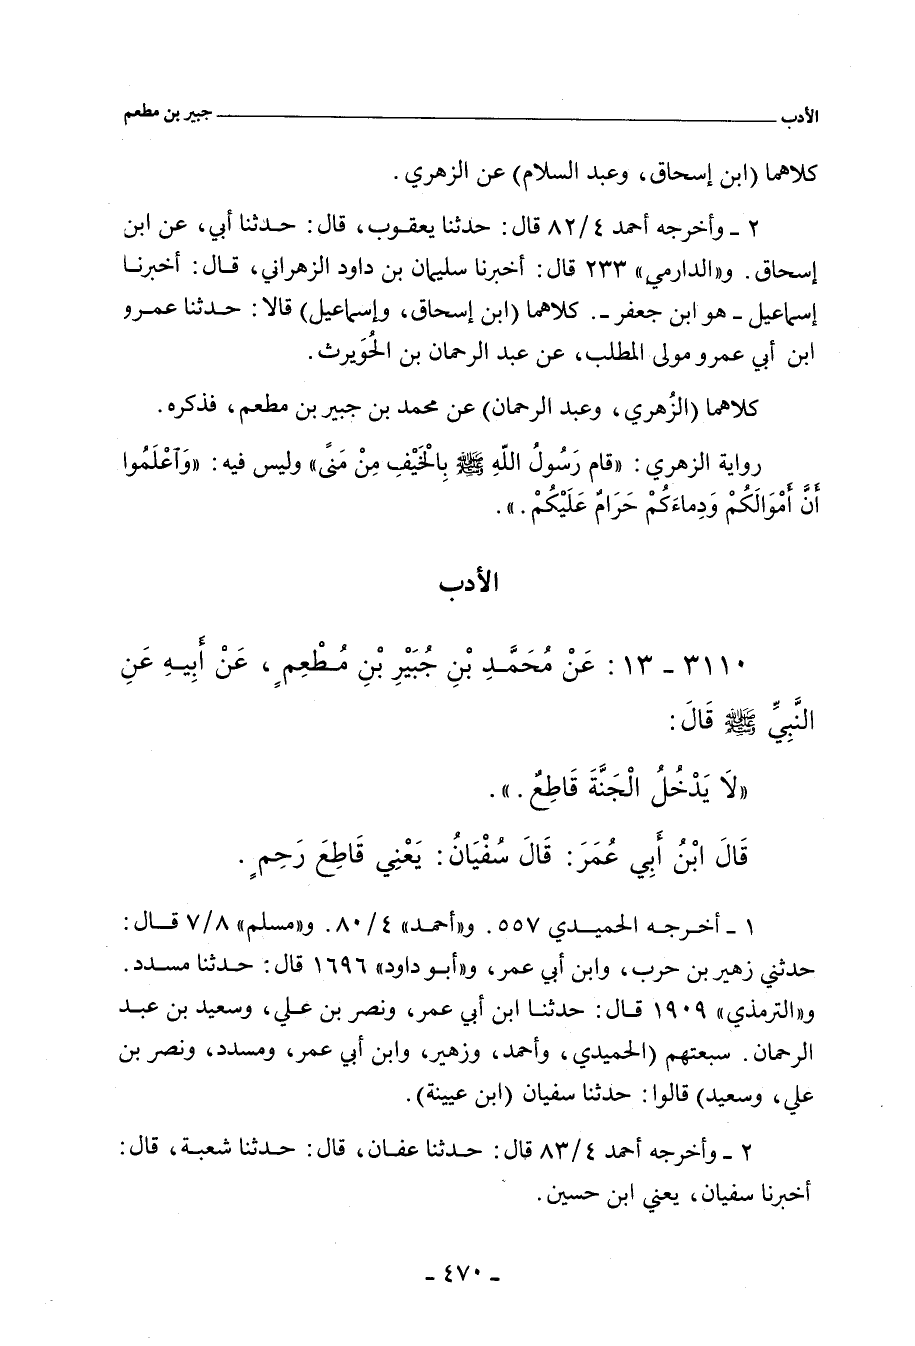 الأدب ــــــــ جبير بن مطعم
كلاهما (ابن إسحاق، وعبد السلام) عن الزهري .
٢ ـ وأخرجه أحمد ٨٢/٤ قال: حدثنا يعقوب، قال: حدثنا أبي، عن ابن
إسحاق. و«الدارمي» ٢٣٣ قال: أخبرنا سليمان بن داود الزهراني، قال: أخبرنا
إسماعيل ـ هو ابن جعفر ـ. كلاهما (ابن إسحاق، وإسماعيل) قالا: حدثنا عمرو
ابن أبي عمرو مولى المطلب، عن عبد الرحمان بن الحُوَيرث.
كلاهما (الزُهري، وعبد الرحمان) عن محمد بن جبير بن مطعم، فذكره.
رواية الزهري: «قام رَسُولُ اللّهِ ﷺ بِالْخَيْفِ مِنْ مَنىً» وليس فيه: «وَآعْلَمُوا
أَنَّ أَمْوَالَكُمْ وَدِماءَكُمْ حَرَامٌ عَلَيْكُمْ.».
الأدب
٣١١٠ ـ ١٣: عَنْ مُحَمَّدِ بْنِ جُبَيْرِ بْنِ مُطْعِمٍ، عَنْ أَبِيهِ عَنِ
النَّبِيِّ ﷺ قَالَ:
«لَا يَدْخُلُ الْجَنَّةَ قَاطِعٌ.».
قَالَ ابْنُ أَبِي عُمَرَ: قَالَ سُفْيَانُ: يَعْنِي قَاطِعَ رَحِمٍ.
١ ـ أخرجه الحميدي ٥٥٧. و«أحمد» ٨٠/٤. و«مسلم» ٧/٨ قال:
حدثني زهير بن حرب، وابن أبي عمر، و«أبو داود» ١٦٩٦ قال: حدثنا مسدد.
و«الترمذي» ١٩٠٩ قال: حدثنا ابن أبي عمر، ونصر بن علي، وسعيد بن عبد
الرحمان. سبعتهم (الحميدي، وأحمد، وزهير، وابن أبي عمر، ومسدد، ونصر بن
علي، وسعيد) قالوا: حدثنا سفيان (ابن عيينة).
٢ ـ وأخرجه أحمد ٨٣/٤ قال: حدثنا عفان، قال: حدثنا شعبة، قال:
أخبرنا سفيان، يعني ابن حسين.
ـ ٤٧٠ ـ